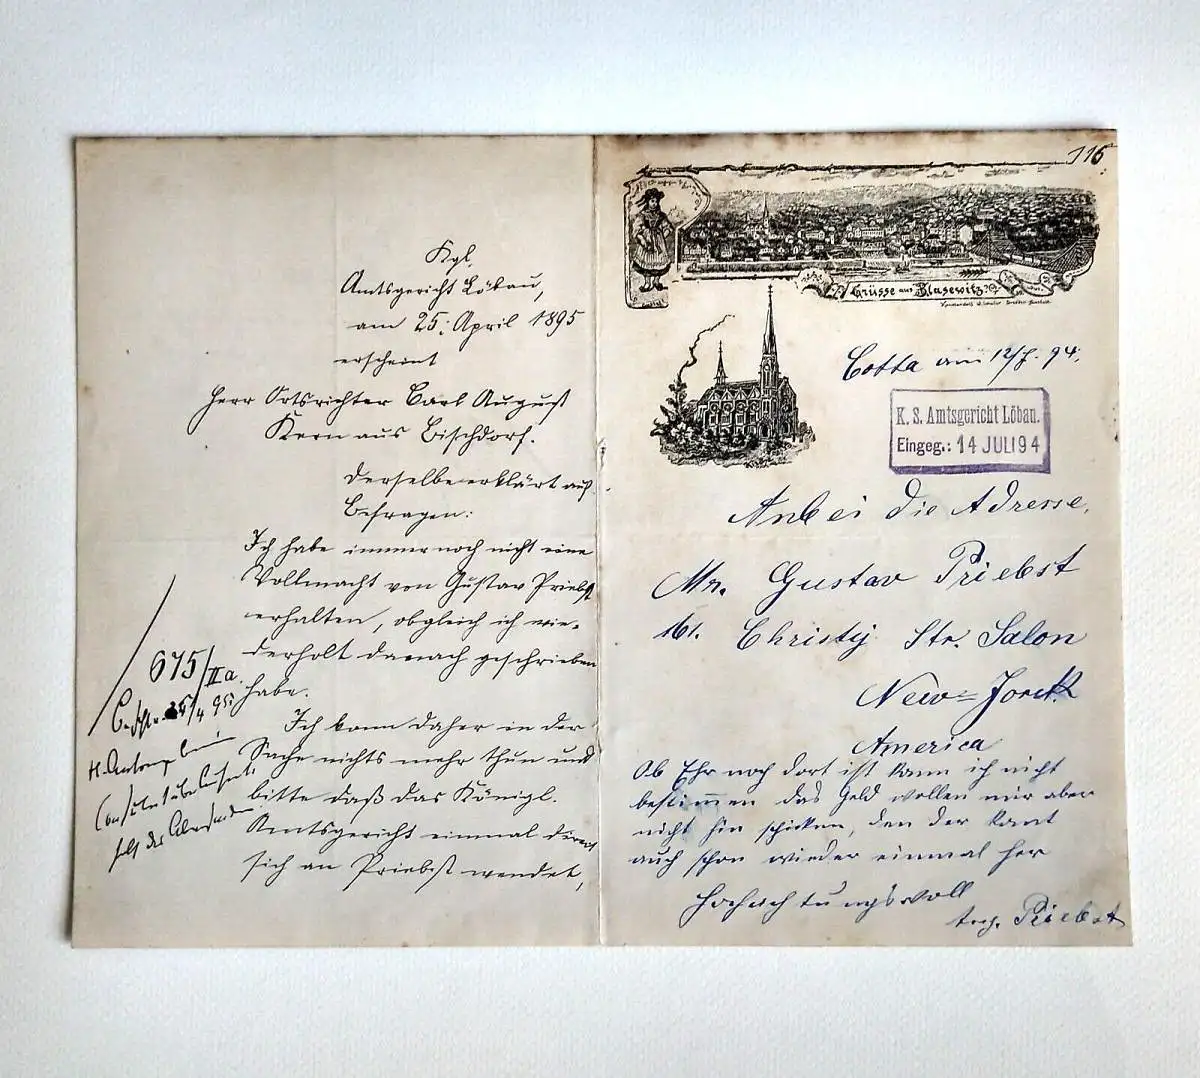 Kgl.
Amtsgericht Löbau,
am 25. April 1895
erscheint
Herr Ortsrichter Carl August
Kern aus Bischdorf.
Derselbe erklärt auf
Befragen:
Ich habe immer noch nicht eine
Vollmacht von Gustav Priebst
erhalten, obgleich ich wie-
derholt danach geschrieben
habe.
Ich kann daher in der
Sache nichts mehr thun und
bitte daß das Königl.
Amtsgericht einmal direct
sich an Priebst wendet,
675/IIa.
116
Grüsse aus Blasewitz
Cotta am 12/7. 94.
K. S. Amtsgericht Löbau.
Eingeg.: 14 JULI 94
Anbei die Adresse,
Mr. Gustav Priebst
161. Christij Str. Salon
New-Jorck.
America
Ob Ehr noch dort ist kann ich nicht
bestimmen das Geld wollen mir aber
nicht hin schicken, den der kant
auch schon wieder einmal her
Hochachtungsvoll
Aug. Priebst